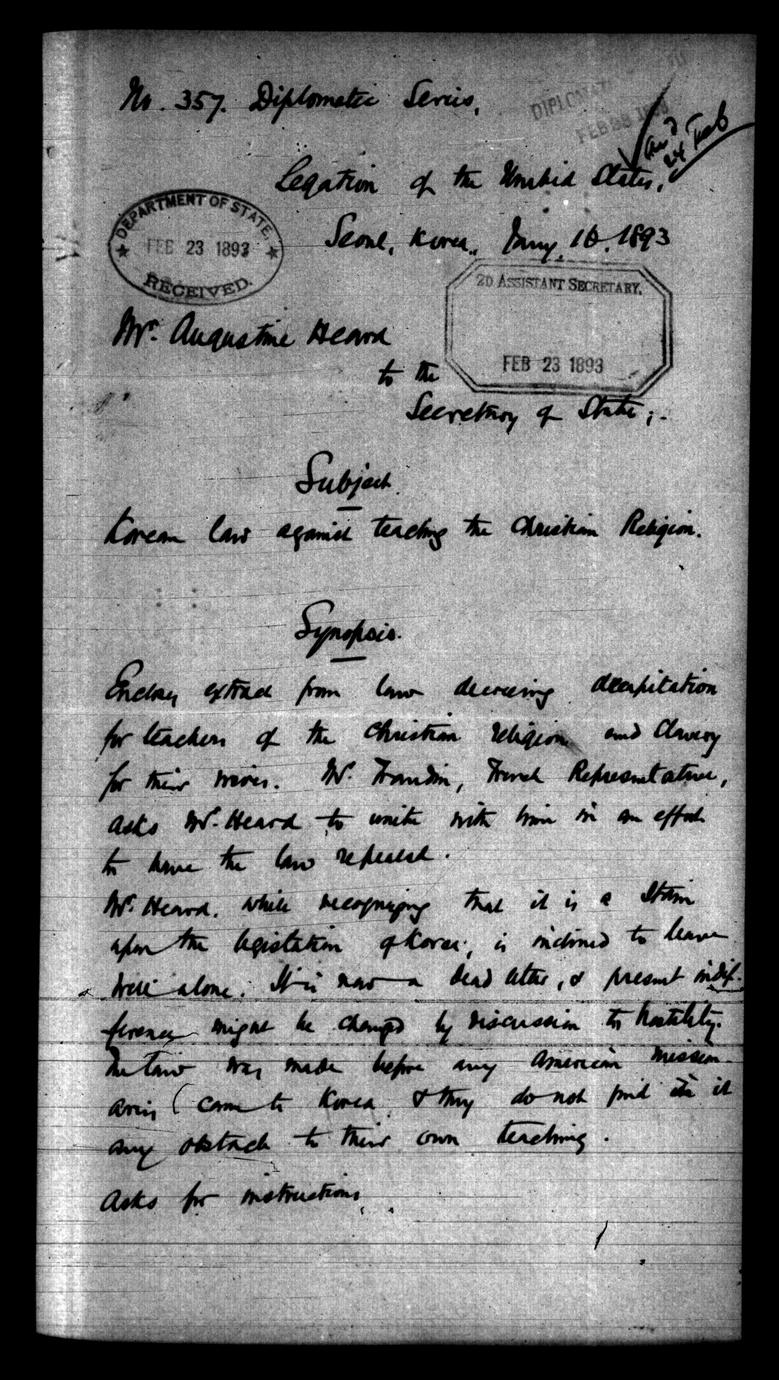 No. 357. Diplomatic Series.
DIPLOMATIC
FEB 23 1893
24 Feb
Legation of the United States,
DEPARTMENT OF STATE.
FEB 23 1893
RECEIVED.
Seoul, Korea, Jany 10, 1893
2D ASSISTANT SECRETARY,
FEB 23 1893
Mr. Augustine Heard
to the
Secretary of State;.
Subject.
Korean law against teaching the Christian Religion.
Synopsis.
Encloses extract from law decreeing decapitation
for teachers of the Christian religion and slavery
for their wives. Mr. Frandin, French Representative,
asks Mr. Heard to unite with him in an effort
to have the law repealed.
Mr. Heard, while recognizing that it is a stain
upon the legislation of Korea, is inclined to leave
well alone. It is now a dead letter, & present indif-
ference might be changed by discussion to hostility.
The law was made before any American mission-
aries came to Korea & they do not find in it
any obstacle to their own teaching.
Asks for instructions.